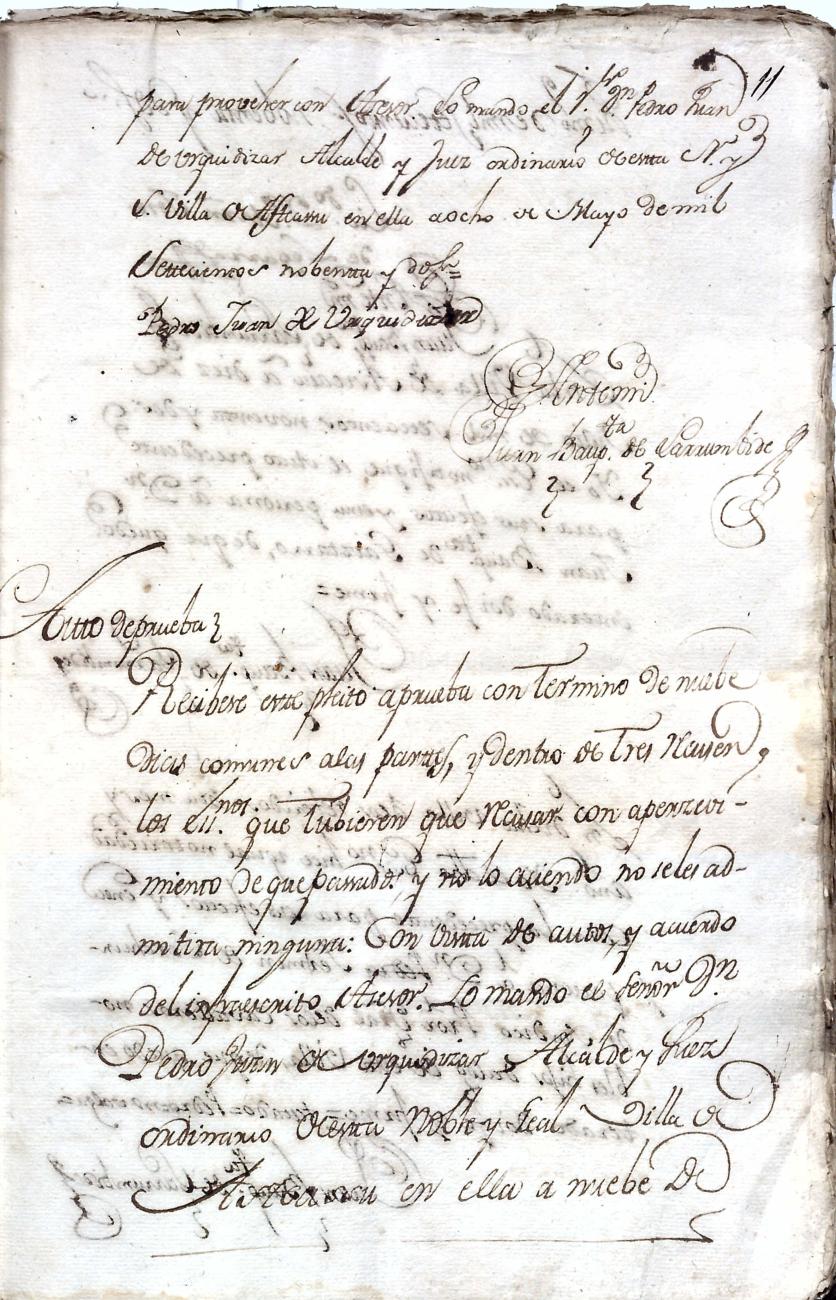 11
para proveher con Asesor. Lo mando el S.r Dn. Pedro Juan
de Urquidizar Alcalde y Juez ordinario de esta N. y
L. Villa de Asteasu en ella a ocho de Mayo de mil
Settecientos nobenta y dos=
Pedro Juan de Urquidizar
Ante mi
Juan Baup.ta de Larrumbide
Autto de prueba
Recibese este pleito a prueba con Termino de nuebe
dias comunes a las parttes, y dentro de Tres Recusen
los ess.nos que Tubieren que Recusar con apercevi-
miento de que passados, y no lo aciendo no se les ad-
mitira ninguna: Con vista de autos, y acuerdo
del infraescrito Asesor. Lo mando el Señor Dn.
Pedro Juan de Urquidizar Alcalde y Juez
ordinario de esta Noble y Leal Villa de
en ella a nuebe de